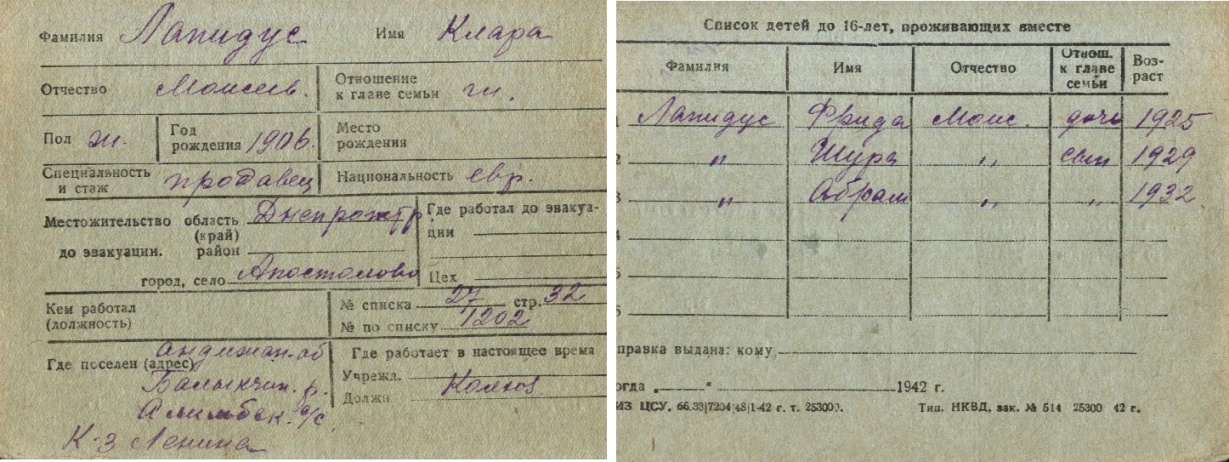 Фамилия Лапидус Имя Клара
Отчество Моисеев. Отношение к главе семьи ж.
Пол ж. Год рождения 1906 Место рождения
Специальность и стаж продавец Национальность евр.
Местожительство до эвакуации. область (край) Днепропетр
район
город, село Апостолово
Где работал до эвакуации
Цех
Кем работал (должность)
№ списка 27 стр. 32
№ по списку 1202
Где поселен (адрес) Андижан. об
Балыкчин. р.
Алимбек. с/с
К-з Ленина
Где работает в настоящее время
Учрежд.
Должн. Колхоз
Список детей до 16-лет, проживающих вместе
Фамилия Имя Отчество Отнош. к главе семьи Возраст
1 Лапидус Фрида Моис. дочь 1925
2 " Шура " сын 1929
3 " Абрам " " 1932
4
5
6
правка выдана: кому
огда „ " 1942 г.
ИЗ ЦСУ. 66.33|7204|48|1-42 г. т. 253000. Тип. НКВД, зак. № 514 25300 42 г.